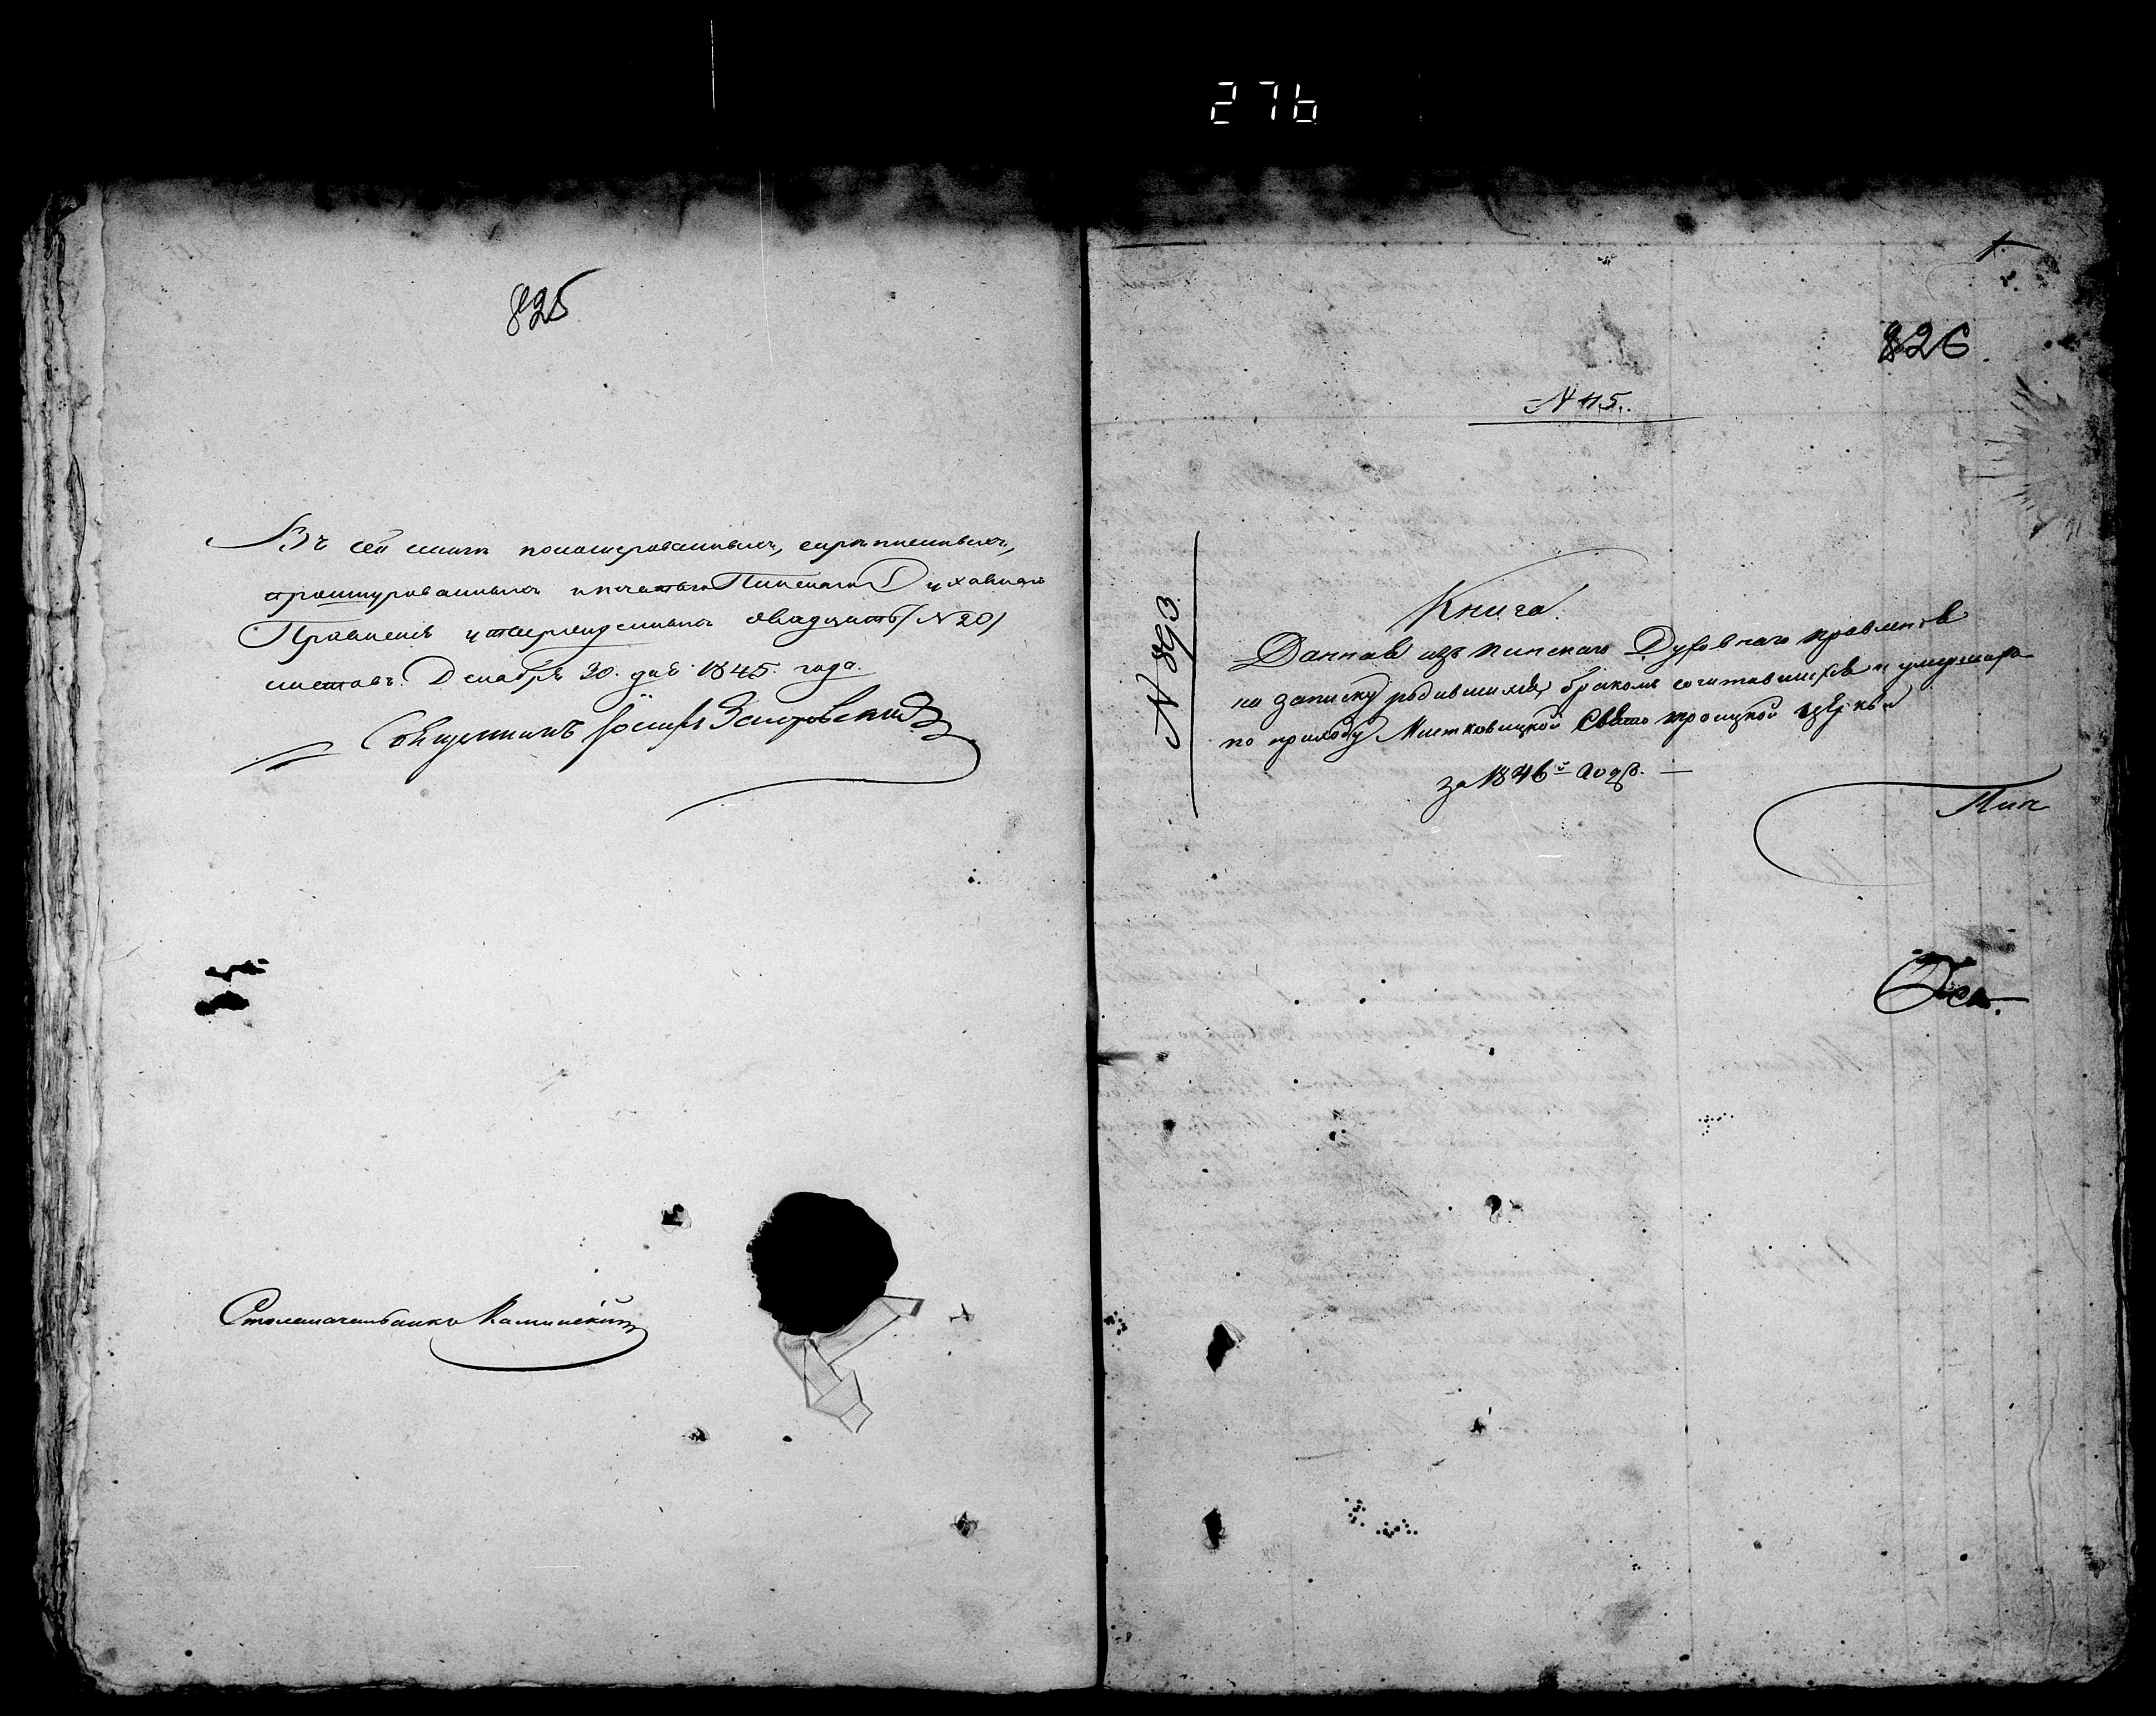 276
825
Въ сей книги нономерованныхъ, скрепленныхъ,
прошнурованныхъ и печатью Пинскаго Духовнаго
Правленія утвержденныхъ двадцать (N 20)
листовъ. Декабря 30. дня 1845. года.
Священникъ Іосифъ
Столоначальникъ Каминскій
1.
826
N 45.
N 893
Книга
Данная изъ Пинскаго Духовнаго правленія
на записку родившихся, бракомъ сочитавшихся и умерших
по приходу Мистковицкой Свято троицкой церкви
за 1846й годъ. —
Пин